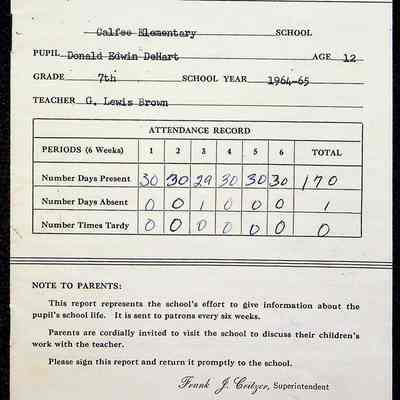 Calfee Elementary SCHOOL
PUPIL Donald Edwin DeHart AGE 12
GRADE 7th SCHOOL YEAR 1964-65
TEACHER G. Lewis Brown
ATTENDANCE RECORD
PERIODS (6 Weeks) 1 2 3 4 5 6 TOTAL
Number Days Present 30 30 29 30 30 30 170
Number Days Absent 0 0 1 0 0 0 1
Number Times Tardy 0 0 0 0 0 0 0
NOTE TO PARENTS:
This report represents the school's effort to give information about the
pupil's school life. It is sent to patrons every six weeks.
Parents are cordially invited to visit the school to discuss their children's
work with the teacher.
Please sign this report and return it promptly to the school.
Frank J. Critzer, Superintendent